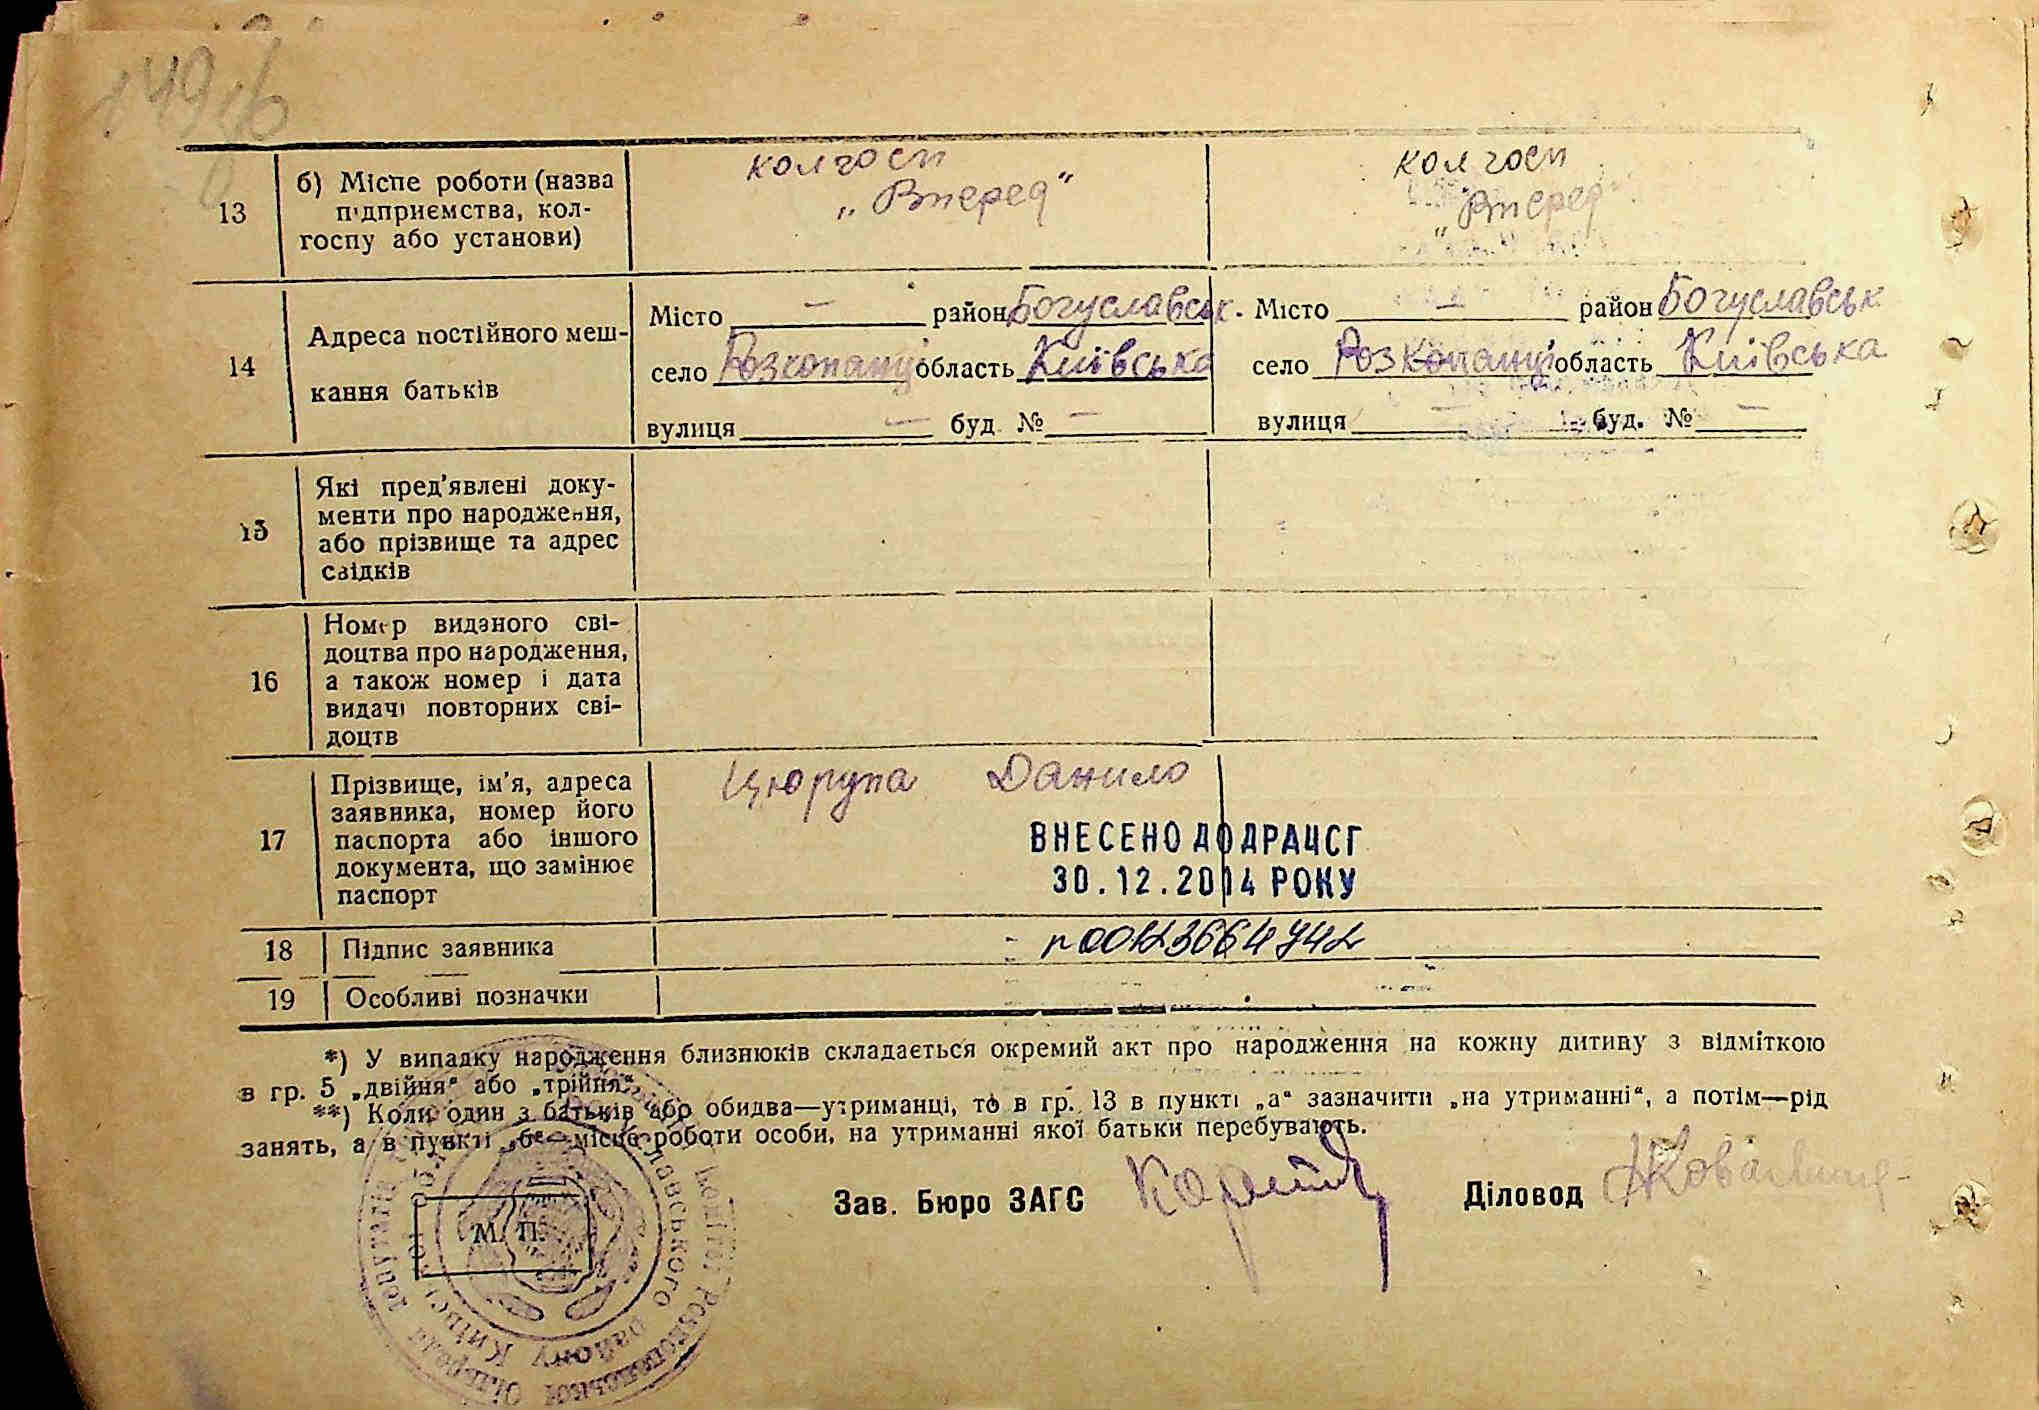 13
б) Місце роботи (назва
підприємства, кол-
госпу або установи)
колгосп
„Вперед"
колгосп
"Вперед"
14
Адреса постійного меш-
кання батьків
Місто — район Богуславськ.
село Розкопанці область Київська
вулиця — буд. № —
Місто — район Богуславськ
село Розкопанці область Київська
вулиця — буд. № —
15
Які пред'явлені доку-
менти про народження,
або прізвище та адрес
свідків
16
Номер виданого сві-
доцтва про народження,
а також номер і дата
видачі повторних сві-
доцтв
17
Прізвище, ім'я, адреса
заявника, номер його
паспорта або іншого
документа, що замінює
паспорт
Цюрупа Данило
ВНЕСЕНО ДО ДРАЦСГ
30.12.2014 РОКУ
18
Підпис заявника
19
Особливі позначки
*) У випадку народження близнюків складається окремий акт про народження на кожну дитину з відміткою
в гр. 5 „двійня" або „трійня".
**) Коли один з батьків або обидва—утриманці, то в гр. 13 в пункті „а" зазначити „на утриманні", а потім—рід
занять, а в пункті „б"—місце роботи особи, на утриманні якої батьки перебувають.
М. П.
Зав. Бюро ЗАГС
Діловод